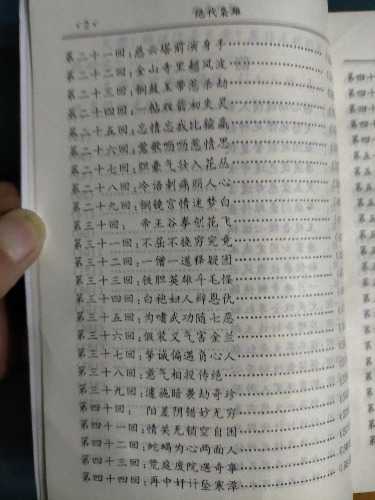 绝代枭雄
第二十一回:慈云塔前演身手
第二十二回:金山寺里起风波
第二十三回:铜鼓墓带惹杀劫
第二十四回:一帖双箭初失灵
第二十五回:忘情忘我比输赢
第二十六回:莺歌呖呖惹情思
第二十七回:胆豪气放入花丛
第二十八回:冷语刺痛丽人心
第二十九回:铜镜宫情迷梦白
第三十回: 帝王谷拳创花飞
第三十一回:不屈不挠穷究竟
第三十二回:一僧一道释疑团
第三十三回:铁胆英雄斗毛怪
第三十四回:白袍妇人辩恩仇
第三十五回:为啸武功随七恶
第三十六回:假装义气害金兰
第三十七回:挚诚偏遇负心人
第三十八回:意气相投传绝
第三十九回:遽施暗袭劫奇珍
第四十回: 阳差阴错妙无穷
第四十一回:情关无锁空自困
第四十二回:蛇蝎为心两面人
第四十三回:荒庭废院遇奇事
第四十四回:再中奸计坠寒潭
第四十